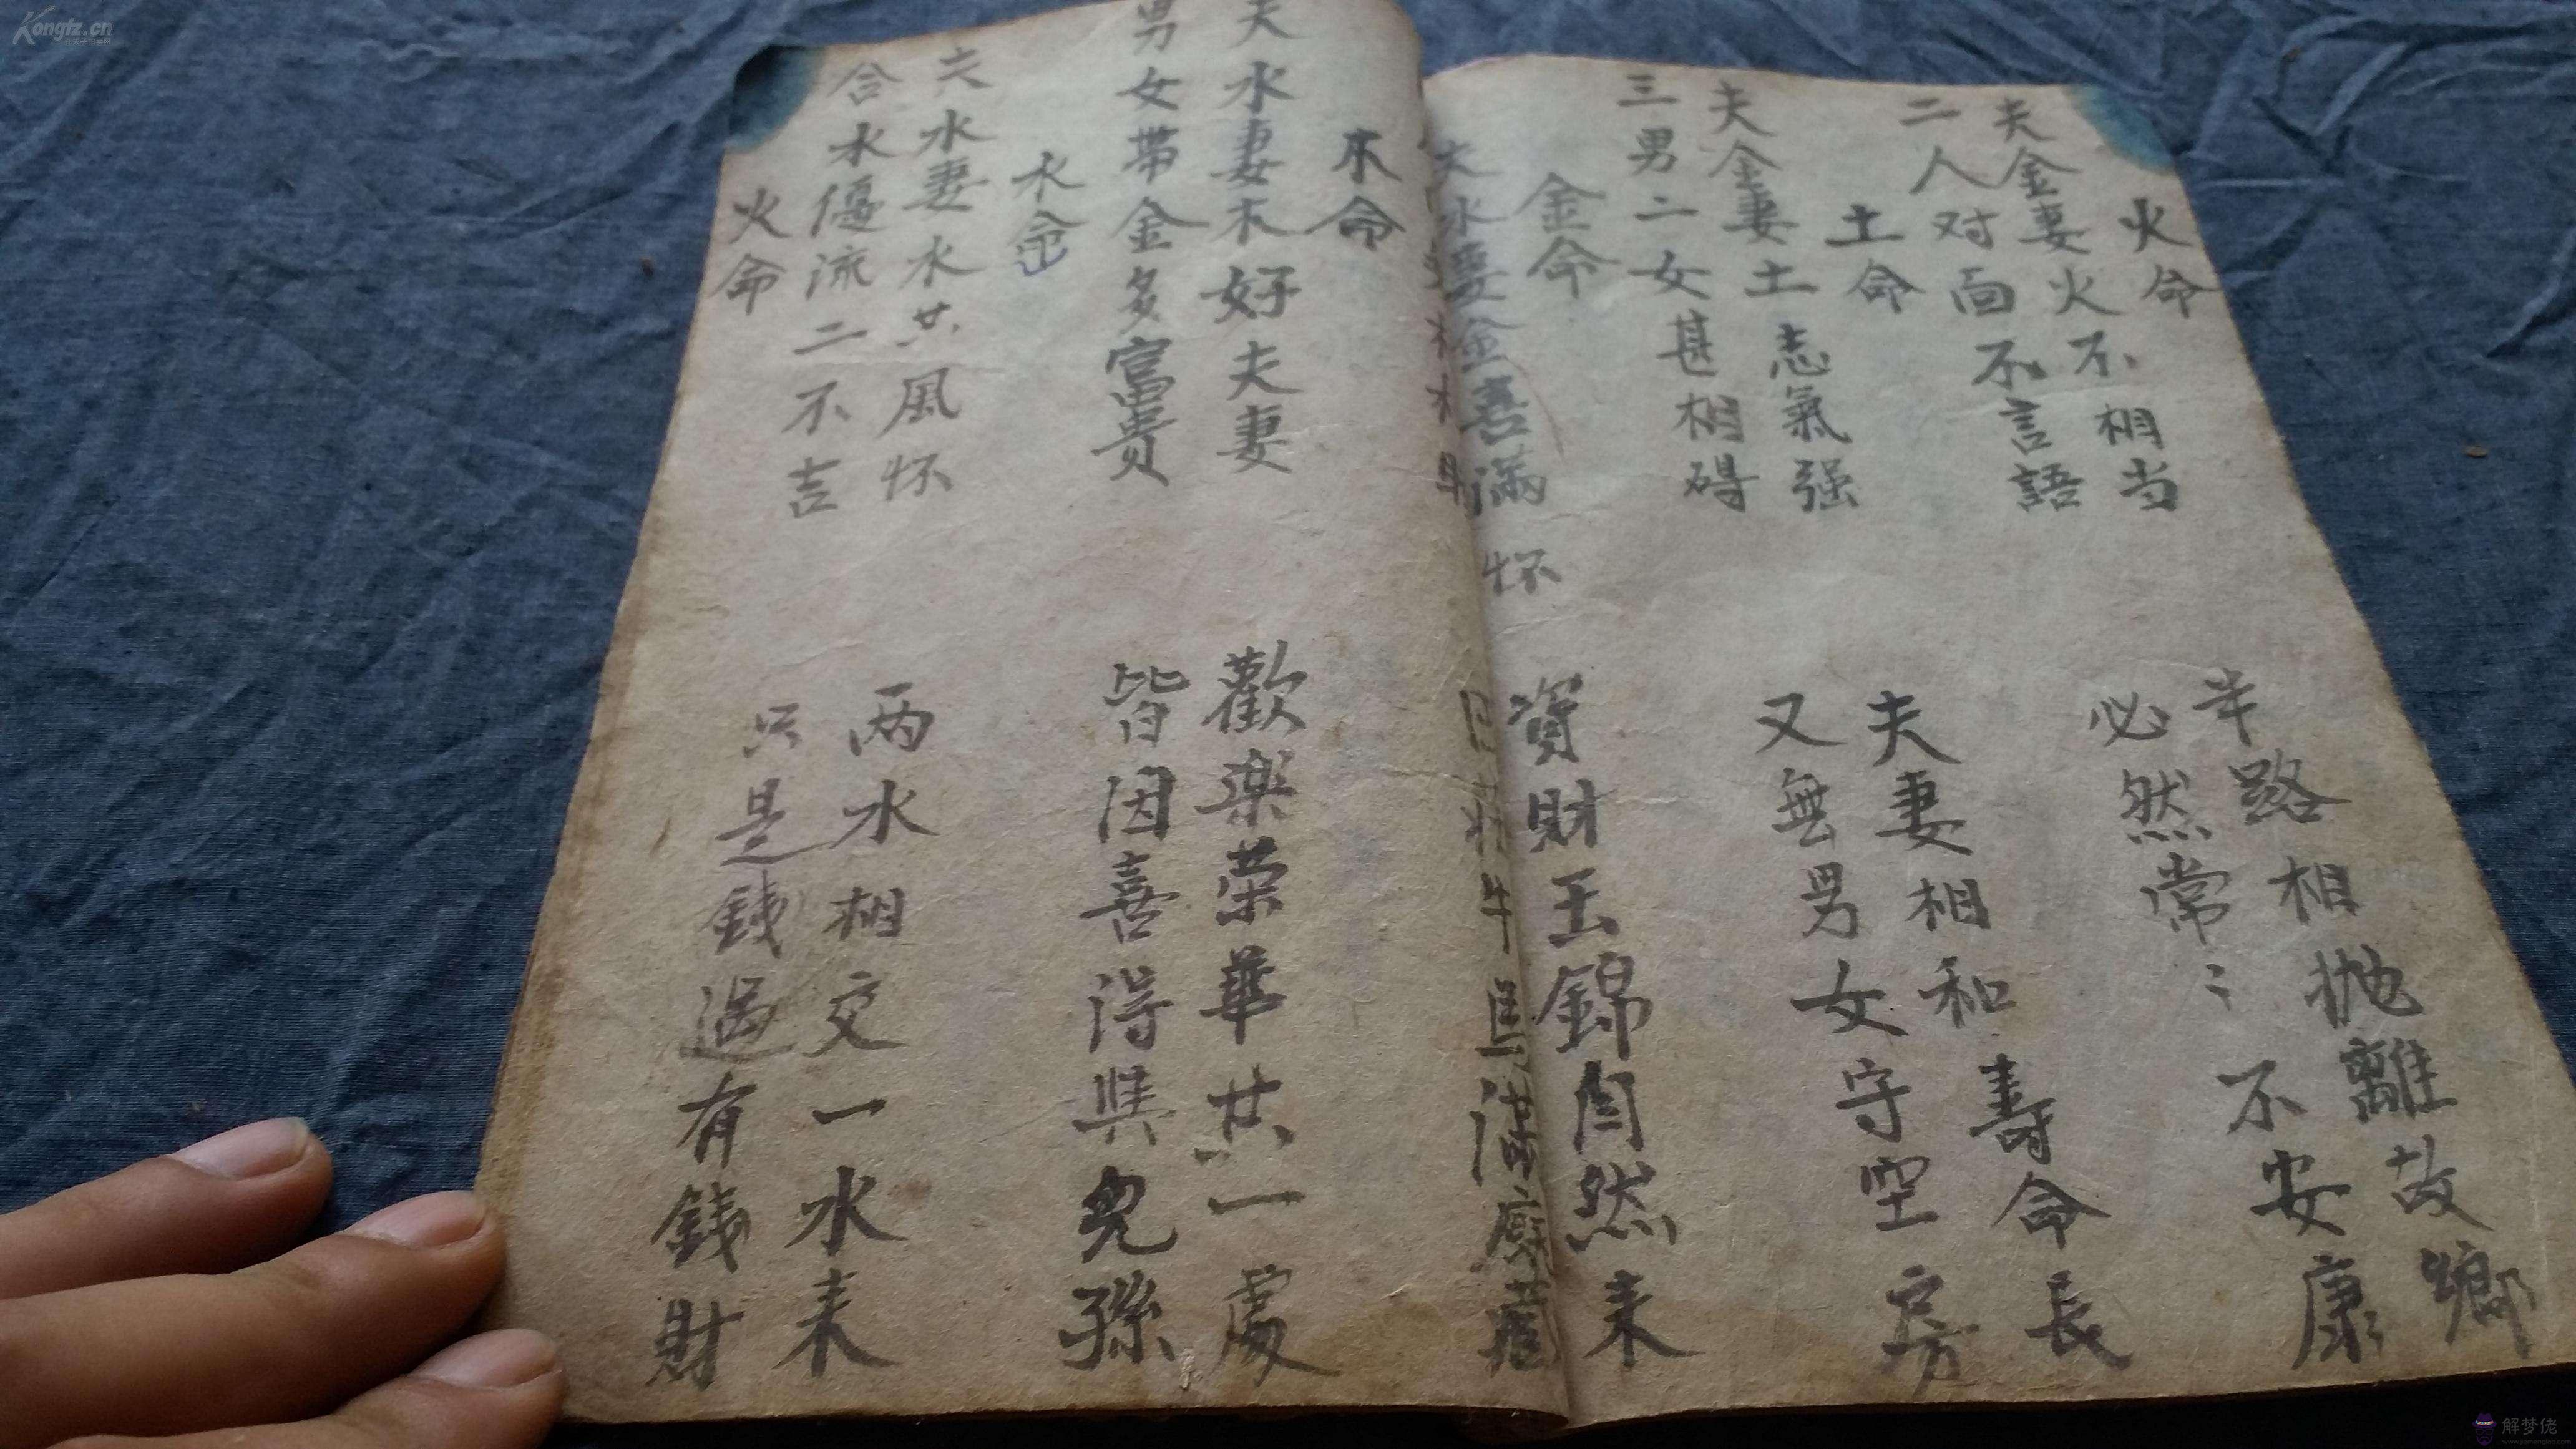 火命
夫金妻火不相当
半路相抛離故鄉
二人对面不言語
必然常々不安康
土命
夫金妻土志氣强
夫妻相和寿命長
三男二女甚相碍
又無男女守空房
金命
夫水妻金喜滿怀
資財玉錦自然来
牛馬滿
木命
夫水妻木好夫妻
歡楽荣華共一處
男女带金多富贵
皆因喜得興兒孫
水命
夫水妻水共風怀
两水相交一水来
合水優流二不吉
只是錢過有錢財
火命
Kongfz.cn
解梦佬